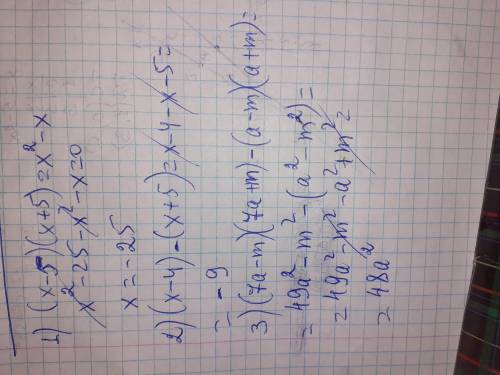 1) (x-5)(x+5)=x²-x
x²-25-x²-x=0
x=-25
2) (x-4)-(x+5)=x-4-x-5=
= -9
3) (7a-m)(7a+m)-(a-m)(a+m)=
= 49a²-m²-(a²-m²)=
= 49a²-m²-a²+m²=
= 48a²